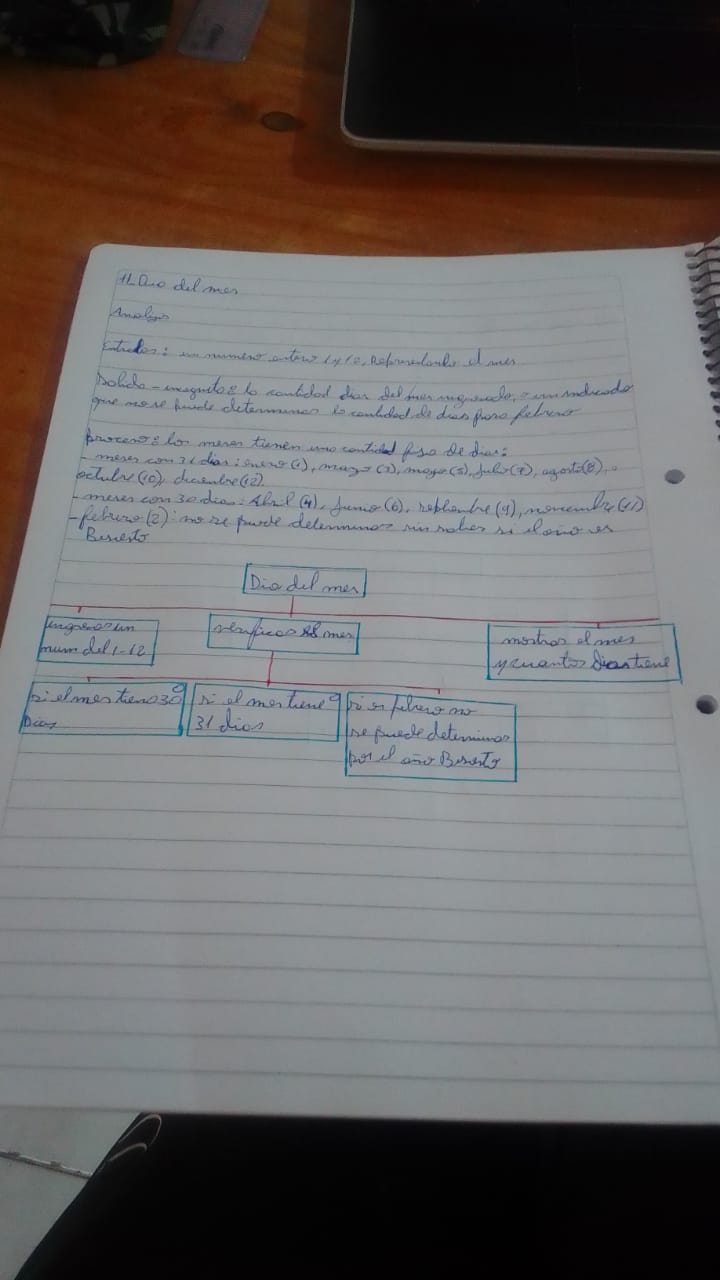 11. Dia del mes
Analisis
Entradas: un numero entero 1 y 12, Representando el mes
Salida - incognita: la cantidad dias del mes ingresado, o un indicado
que no se puede determinar la cantidad de dias para febrero
proceso: los meses tienen una cantidad fija de dias:
- meses con 31 dias: enero (1), marzo (3), mayo (5), Julio (7), agosto (8),
octubre (10), diciembre (12)
- meses con 30 dias: Abril (4), Junio (6), septiembre (9), noviembre (11)
- febrero (2): no se puede determinar sin saber si el año es
Bisiesto
Dia del mes
ingresar un
num del 1-12
verificar el mes
mostrar el mes
y cuantos Dias tiene
si el mes tiene 30
Dias
si el mes tiene
31 dias
si es febrero no
se puede determinar
por el año Bisiesto